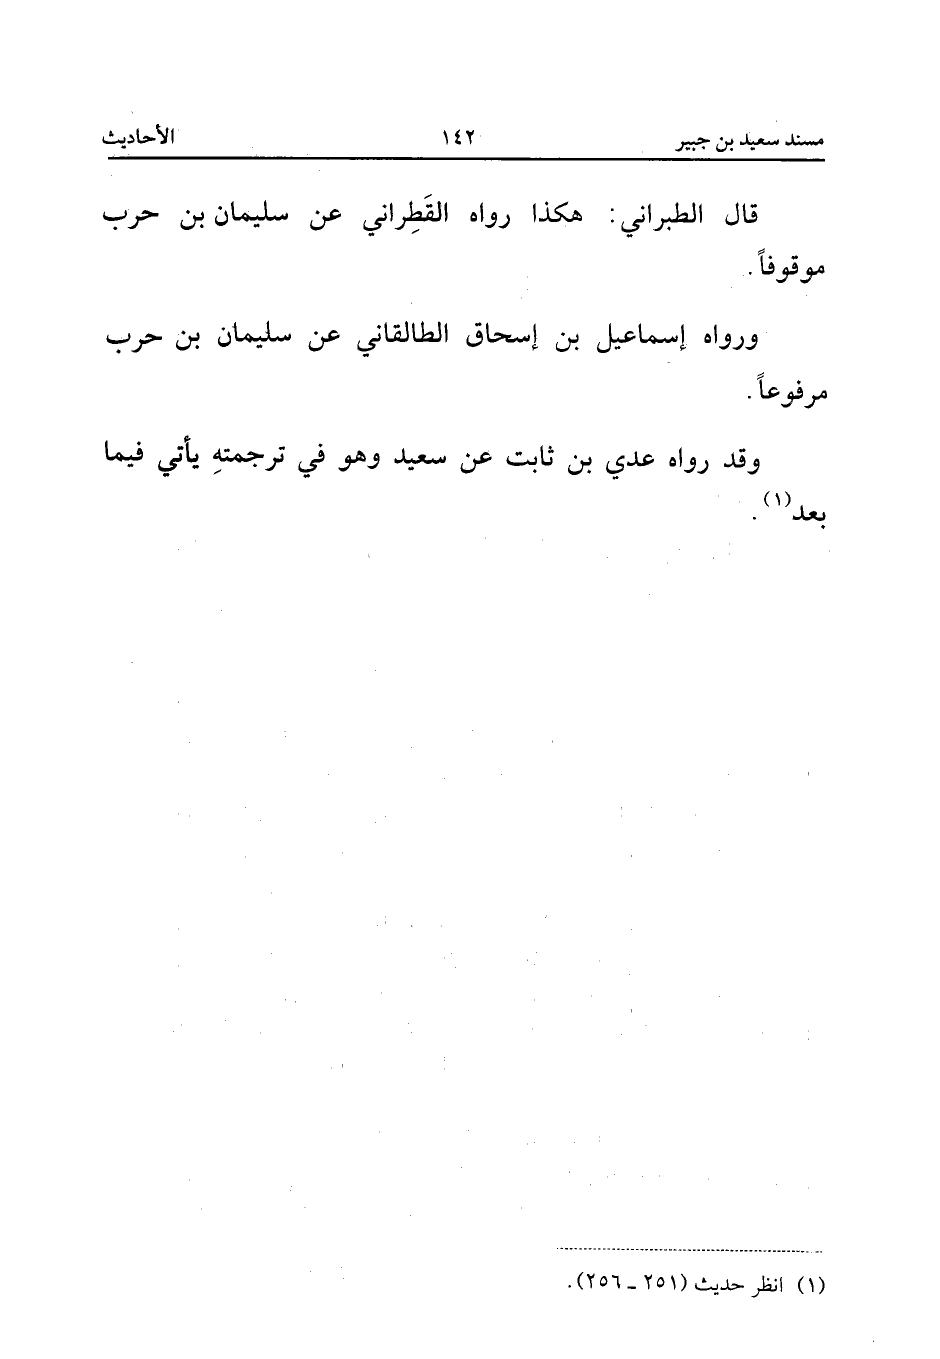 مسند سعيد بن جبير ١٤٢ الأحاديث
قال الطبراني: هكذا رواه القَطِراني عن سليمان بن حرب
موقوفاً.
ورواه إسماعيل بن إسحاق الطالقاني عن سليمان بن حرب
مرفوعاً.
وقد رواه عدي بن ثابت عن سعيد وهو في ترجمتهِ يأتي فيما
بعد(١).
(١) انظر حديث (٢٥١ ـ ٢٥٦).